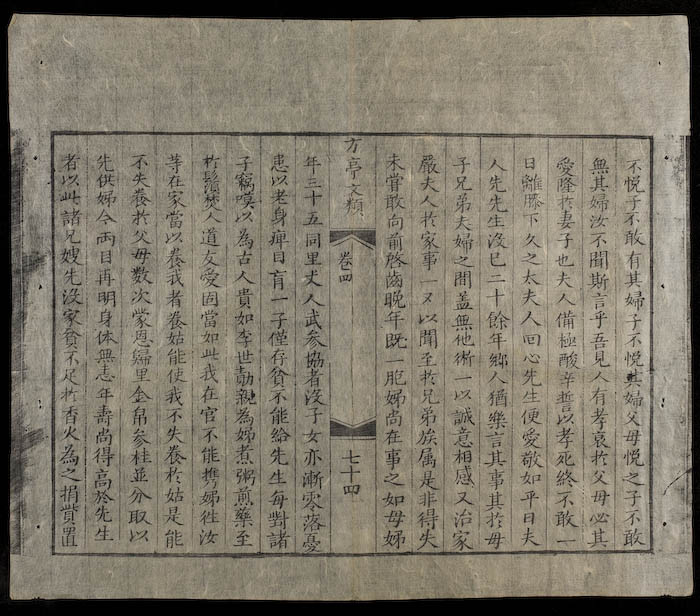 不悦子不敢有其婦子不悦其婦父母悦之子不敢
無其婦汝不聞斯言乎吾見人有孝衰於父母必其
愛隆於妻子也夫人備極酸辛誓以孝死終不敢一
日離膝下久之太夫人回心先生便愛敬如平日夫
人先先生沒已二十餘年鄉人猶樂言其事其於母
子兄弟夫婦之間蓋無他術一以誠意相感又治家
嚴夫人於家事一又以聞至於兄弟族属是非得失
未嘗敢向前啓齒晚年既一胞姊尚在事之如母姊
方亭文類
卷四
七十四
年三十五同里丈人武参協者沒子女亦漸零落憂
患以老身痺目盲一子僅存貧不能給先生每對諸
子竊嘆以為古人貴如李世勣親為姊煮粥煎藥至
於鬚焚人道友愛固當如此我在官不能携姊徃汝
等在家當以養我者養姑能使我不失養於姑是能
不失養於父母數次蒙恩歸里金帛参桂並分取以
先供姊今兩目再明身体無恙年壽尚得高於先生
者以此諸兄嫂先沒家貧不足於香火為之捐貲置